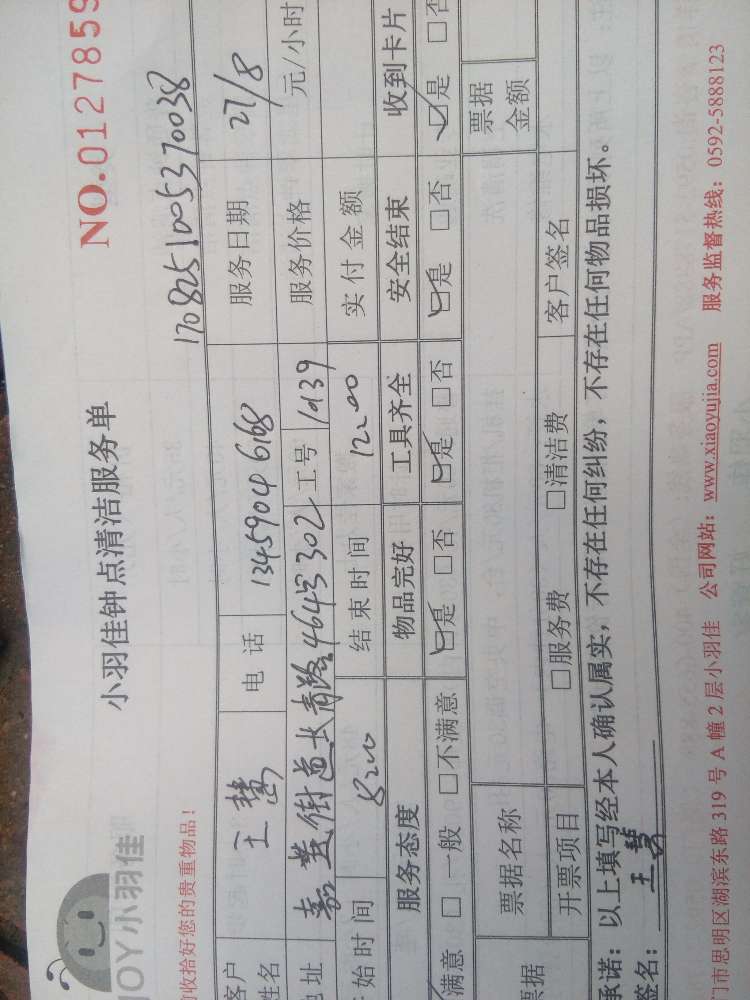 JOY小羽佳
小羽佳钟点清洁服务单
NO.0127859
收拾好您的贵重物品!
1708251005370038
客户姓名 王慧 电话 13459046168 服务日期 27/8
地址 嘉莲街道长青路464号302 工号 1939 服务价格 元/小时
始时间 8:00 结束时间 12:00 实付金额
服务态度 物品完好 工具齐全 安全结束 收到卡片
满意 □一般 □不满意 ☑是 □否 ☑是 □否 ☑是 □否 ☑是 □否
票据 票据名称 票据金额
开票项目 □服务费 □清洁费 客户签名
承诺:以上填写经本人确认属实,不存在任何纠纷,不存在任何物品损坏。
签名: 王慧
门市思明区湖滨东路 319 号 A 幢 2 层小羽佳 公司网站:www.xiaoyujia.com 服务监督热线:0592-5888123